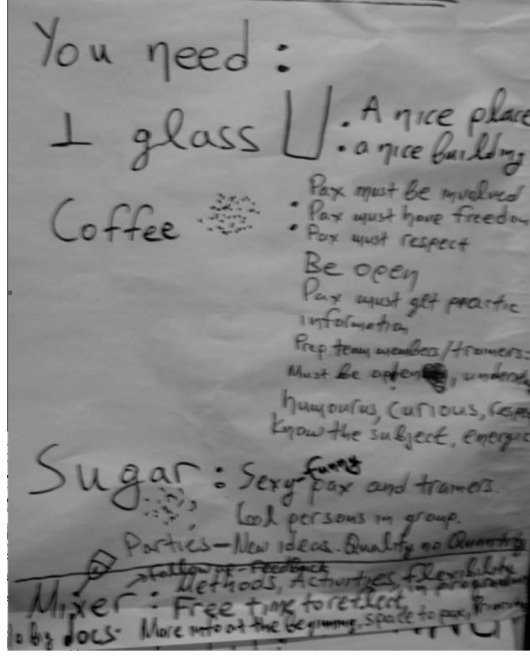 You need :
1 glass
. A nice place
. a nice building
Coffee
Pax must be involved
• Pax must have freedom
• Pax must respect
Be open
Pax must get practic
information
Prep team members/trainers:
Must be open, underst
humourus, curious, respe
know the subject, energic
Sugar : Sexy-funny pax and trainers.
Cool persons in group.
Parties-New ideas. Quality no Quantity
follow up-Feedback
Mixer : Methods, Activities, flexibility in programm
Free time to reflect,
big docs. More info at the beginning, space to pax,